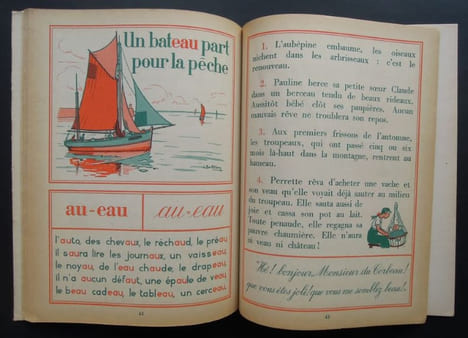 Un bateau part
pour la pêche
au-eau
au-eau
l'auto, des chevaux, le réchaud, le préau,
il saura lire les journaux, un vaisseau,
le noyau, de l'eau chaude, le drapeau,
il n'a aucun défaut, une épaule de veau,
le beau cadeau, le tableau, un cerceau.
42
1. L'aubépine embaume, les oiseaux
nichent dans les arbrisseaux : c'est le
renouveau.
2. Pauline berce sa petite sœur Claude
dans un berceau tendu de beaux rideaux.
Aussitôt bébé clôt ses paupières. Aucun
mauvais rêve ne troublera son repos.
3. Aux premiers frissons de l'automne,
les troupeaux, qui ont passé cinq ou six
mois là-haut dans la montagne, rentrent au
hameau.
4. Perrette rêva d'acheter une vache et
son veau qu'elle voyait déjà sauter au milieu
du troupeau. Elle sauta aussi de
joie et cassa son pot au lait.
Toute penaude, elle regagna sa
pauvre chaumière. Elle n'aura
ni veau ni château !
"Hé ! bonjour, Monsieur du Corbeau !
que vous êtes joli ! que vous me semblez beau !"
43